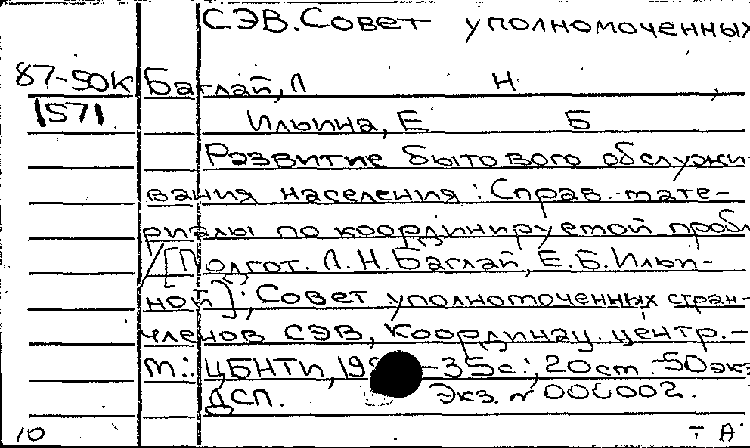 СЭВ. Совет уполномоченных
87-50К Баглай, Л Н
1571
Ильина, Е Б
Развитие бытового обслужи
вания населения : Справ. мате-
риалы по координируемой пробл
/[Подгот. Л.Н. Баглай, Е.Б. Ильи-
ной]; Совет уполномоченных стран-
членов СЭВ, Координац. центр. -
М.: ЦБНТИ, - 35с.; 20см - 50экз
ДСП. Экз. № 000002.
10 т А